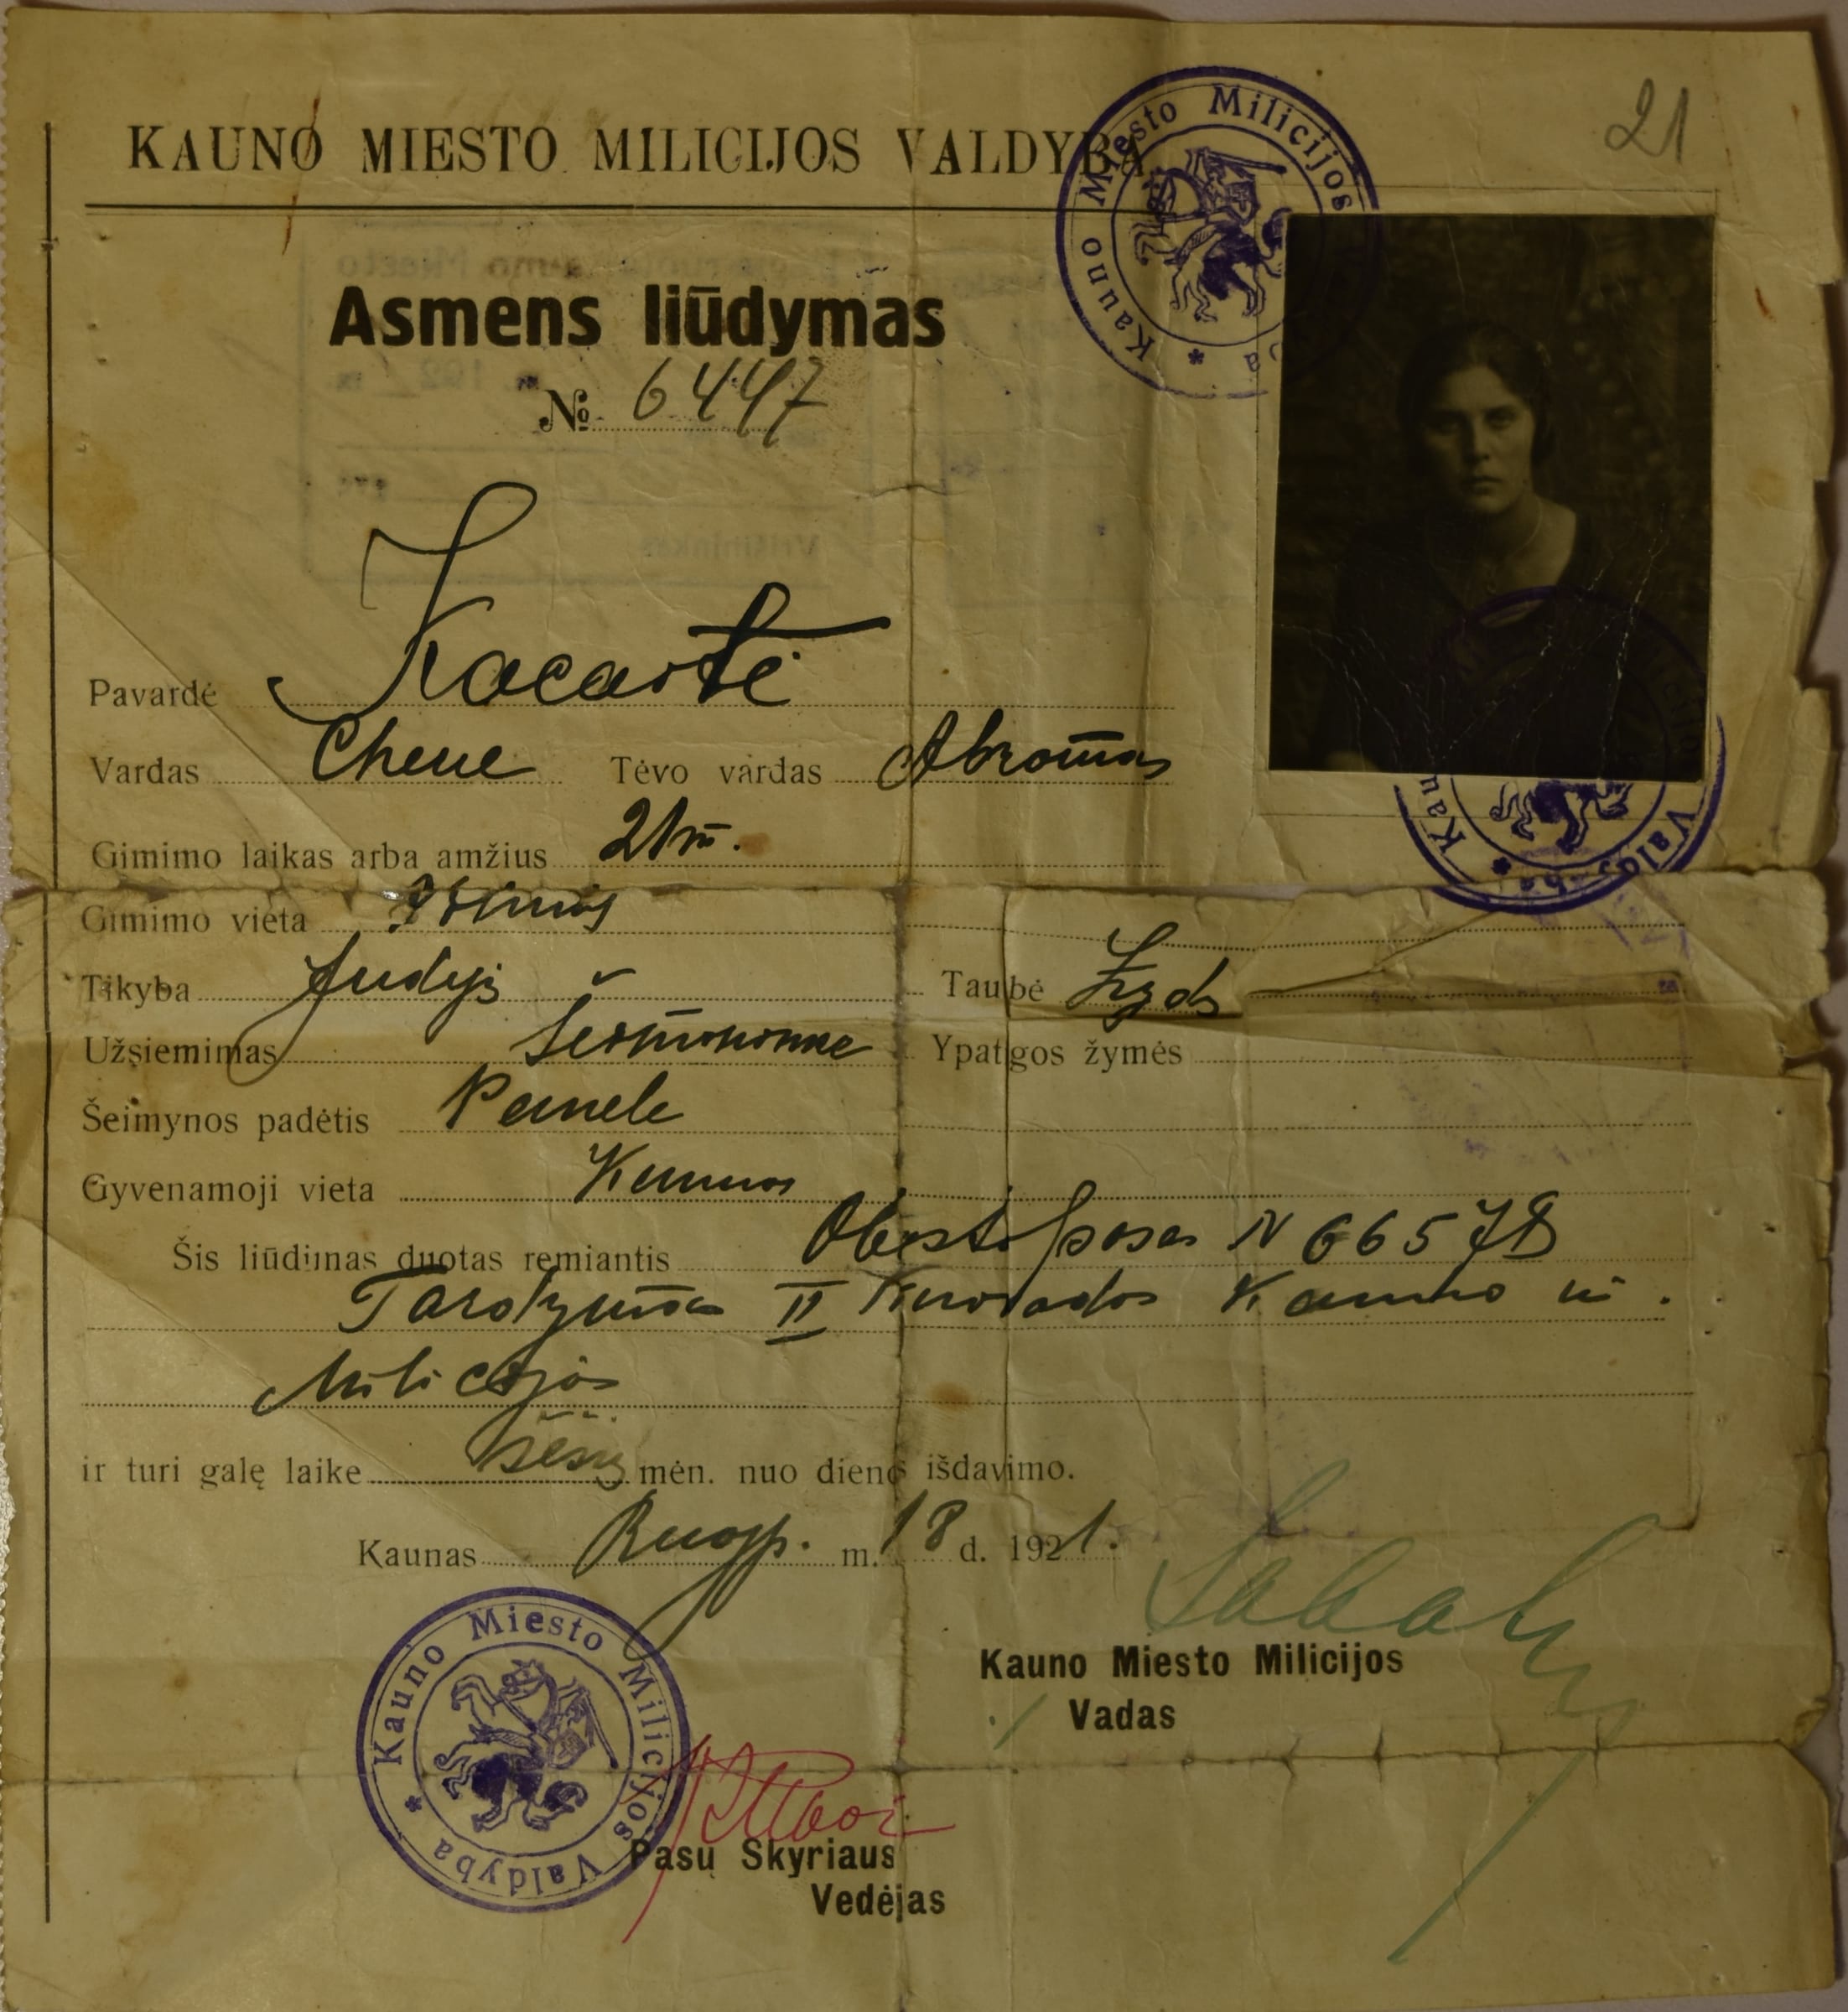 21
KAUNO MIESTO MILICIJOS VALDYBA
Kauno Miesto Milicijos
Asmens liūdymas
№ 6447
Pavardė Kacaitė
Vardas Chene Tėvo vardas Abromas
Gimimo laikas arba amžius 21 m.
Gimimo vieta
Tikyba Judėjų Taubė Žyds
Užsiemimas Ypatigos žymės
Šeimynos padėtis Panelė
Gyvenamoji vieta Kaunas
Šis liūdijnas duotas remiantis N 66578
Tardymas II Nuovados Kauno m.
Milicijos
ir turi galę laike šešių mėn. nuo dienos išdavimo.
Kaunas Rugp. m. 18 d. 1921.
Kauno Miesto Milicijos
Vadas
Kauno Miesto Milicijos Valdyba
Pasų Skyriaus
Vedėjas